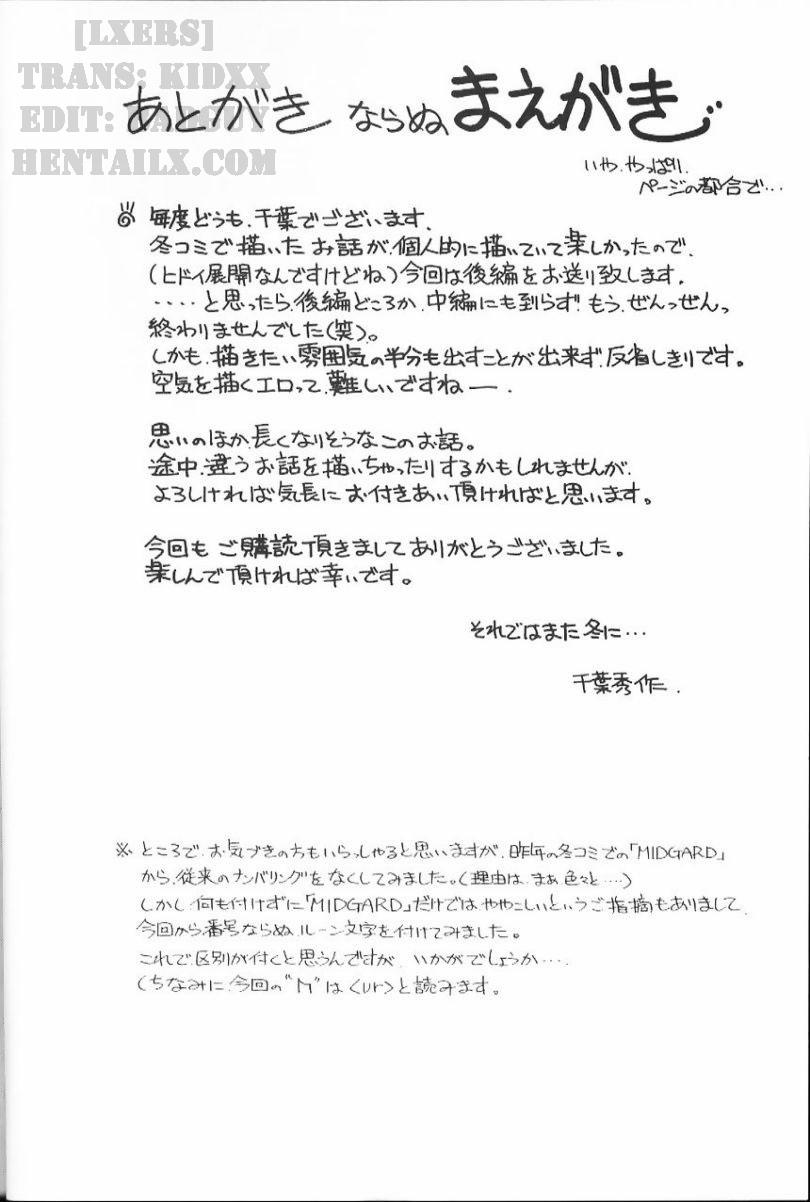 [LXERS]
TRANS: KIDXX
EDIT:
HENTAILX.COM
あとがき ならぬ、まえがき
いや、やっぱり、
ページの都合で…
毎度どうも、千葉でございます。
冬コミで描いたお話が、個人的に描いていて楽しかったので、
(ヒドイ展開なんですけどね)今回は後編をお送り致します。
‥‥と思ったら、後編どころか、中編にも到らず!もう、ぜんっぜんっ
終わりませんでした(笑)。
しかも、描きたい雰囲気の半分も出すことが出来ず、反省しきりです。
空気を描くエロって、難しいですねー。
思いのほか、長くなりそうなこのお話。
途中、違うお話を描いちゃったりするかもしれませんが、
よろしければ気長にお付きあい頂ければと思います。
今回もご購読頂きましてありがとうございました。
楽しんで頂ければ幸いです。
それではまた冬に…
千葉秀作.
※ ところで、お気づきの方もいらっしゃると思いますが、昨年の冬コミでの「MIDGARD」
から、従来のナンバリングをなくしてみました。(理由は、まぁ色々と‥‥)
しかし何も付けずに「MIDGARD」だけではややこしいというご指摘もありまして、
今回から番号ならぬ、ルーン文字を付けてみました。
これで区別が付くと思うんですが、いかがでしょうか‥‥.
(ちなみに、今回の"ᚢ"は<ur>と読みます。